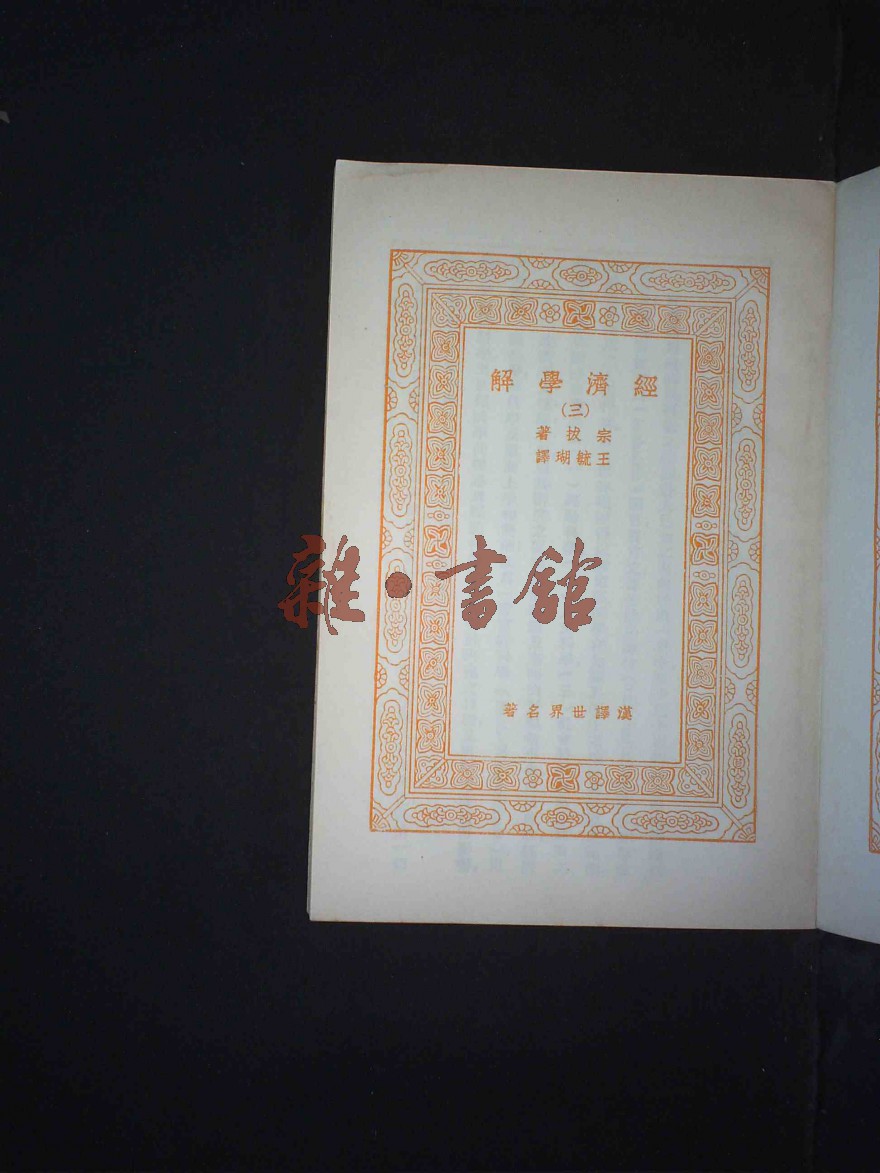 經濟學解
(三)
宗拔著
王毓瑚譯
雜·書館
漢譯世界名著